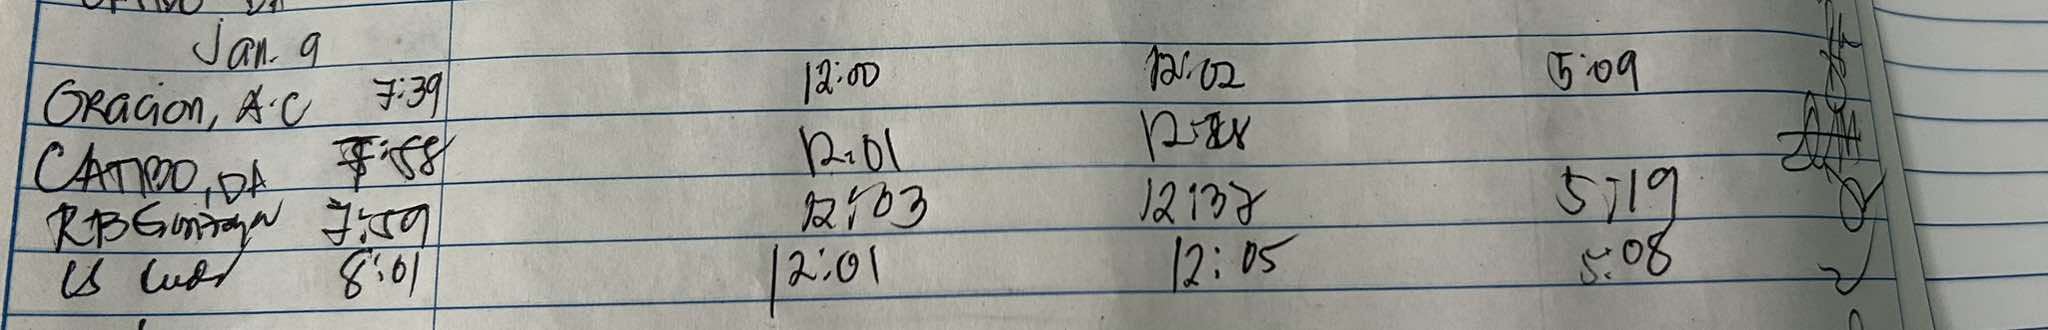 Jan. 9
Oracion, A.C 7:39 12:00 12:02 5:09
CATIBO, DA 7:58 12:01
RB 7:59 12:03 12:38 5:19
8:01 12:01 12:05 5:08